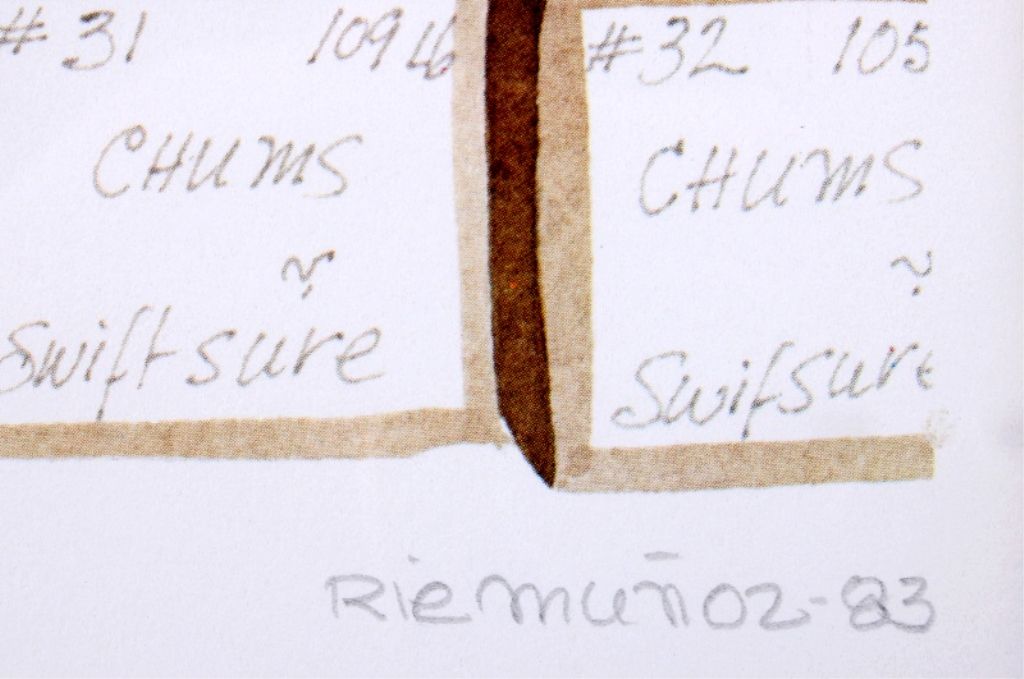 #31 109 lb
CHUMS
Swiftsure
#32 105
CHUMS
Swifsure
Rie Muñoz-83